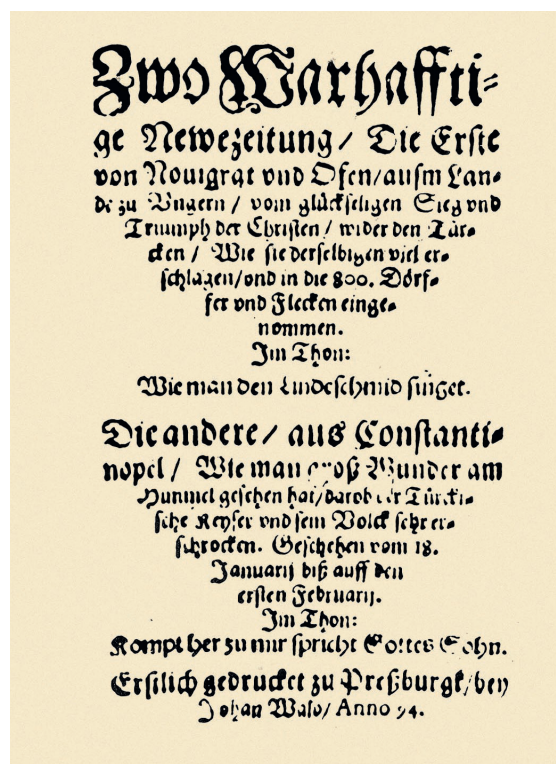 Zwo Warhaffti⸗
ge Newezeitung / Die Erste
von Nouigrat vnd Ofen/ausm Lan⸗
de zu Vngern / vom glückseligen Sieg vnd
Triumph der Christen / wider den Tür⸗
cken / Wie sie derselbigen viel er⸗
schlagen/vnd in die 800. Dörf⸗
fer vnd Flecken einge⸗
nommen.
Im Thon:
Wie man den Lindeschmid singet.
Die andere / aus Constanti⸗
nopel / Wie man groß Wunder am
Himmel gesehen hat/darob der Türcki⸗
sche Keyser vnd sein Volck sehr er⸗
schrocken. Geschehen vom 18.
Januarij biß auff den
ersten Februarij.
Im Thon:
Kompt her zu mir spricht Gottes Sohn.
Erstlich gedrucket zu Preßburgk/bey
Johan Walo/ Anno 94.